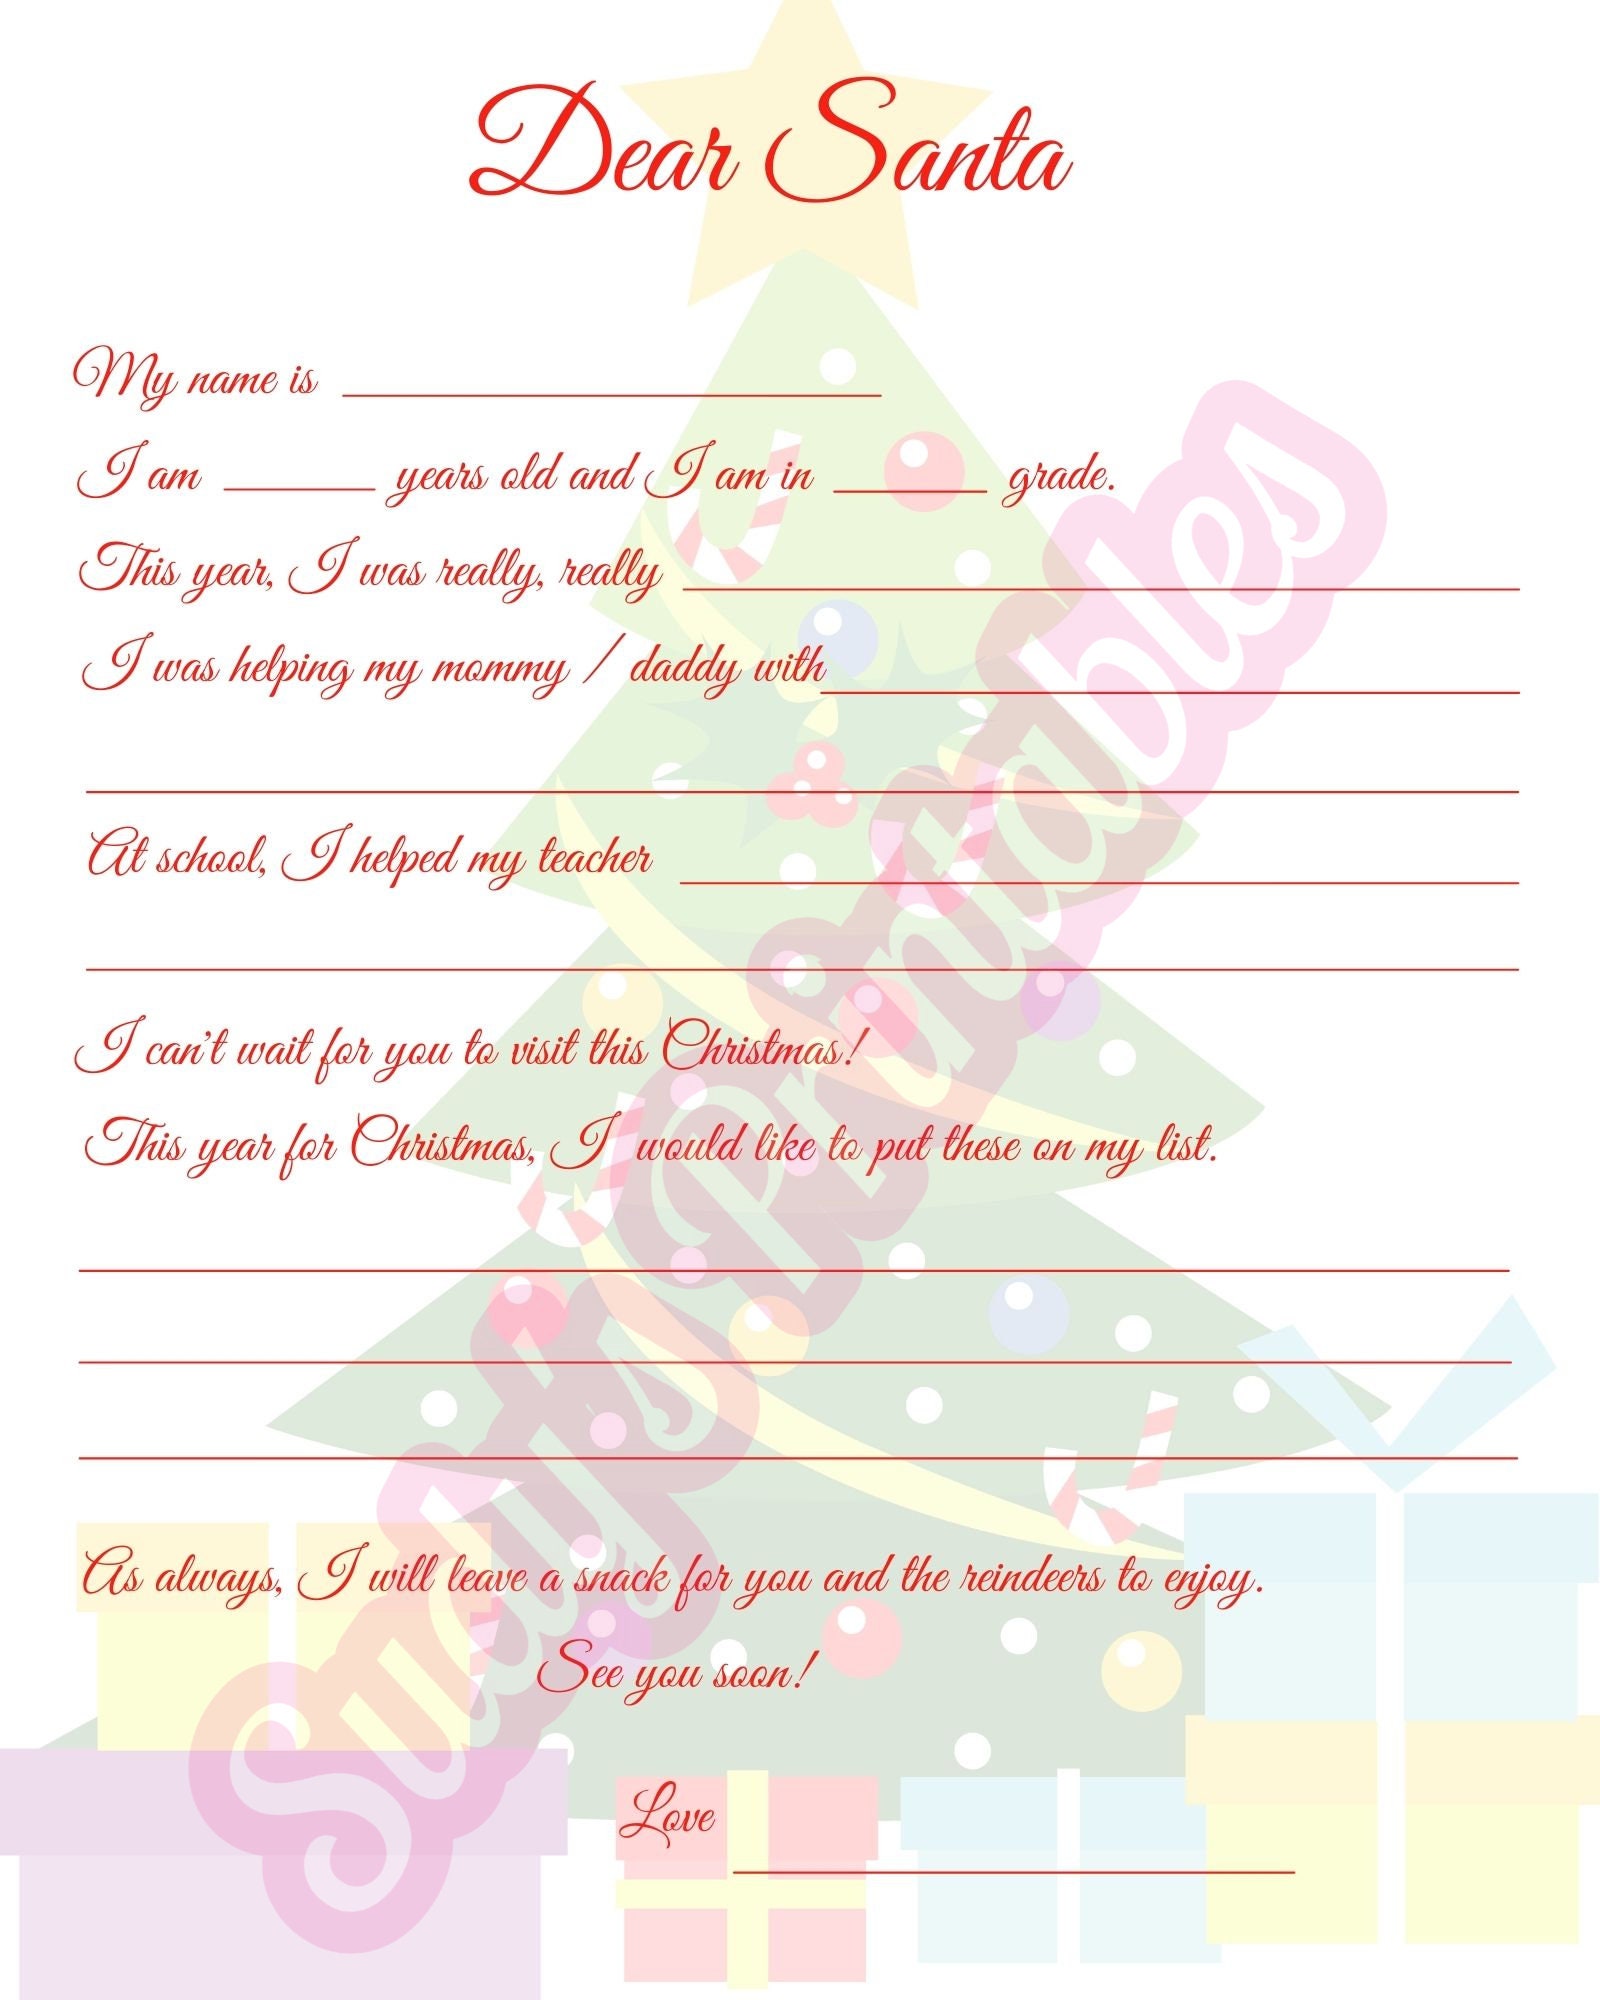 Dear Santa
My name is
I am years old and I am in grade.
This year, I was really, really
I was helping my mommy / daddy with
At school, I helped my teacher
I can't wait for you to visit this Christmas!
This year for Christmas, I would like to put these on my list.
As always, I will leave a snack for you and the reindeers to enjoy.
See you soon!
Love
Printables